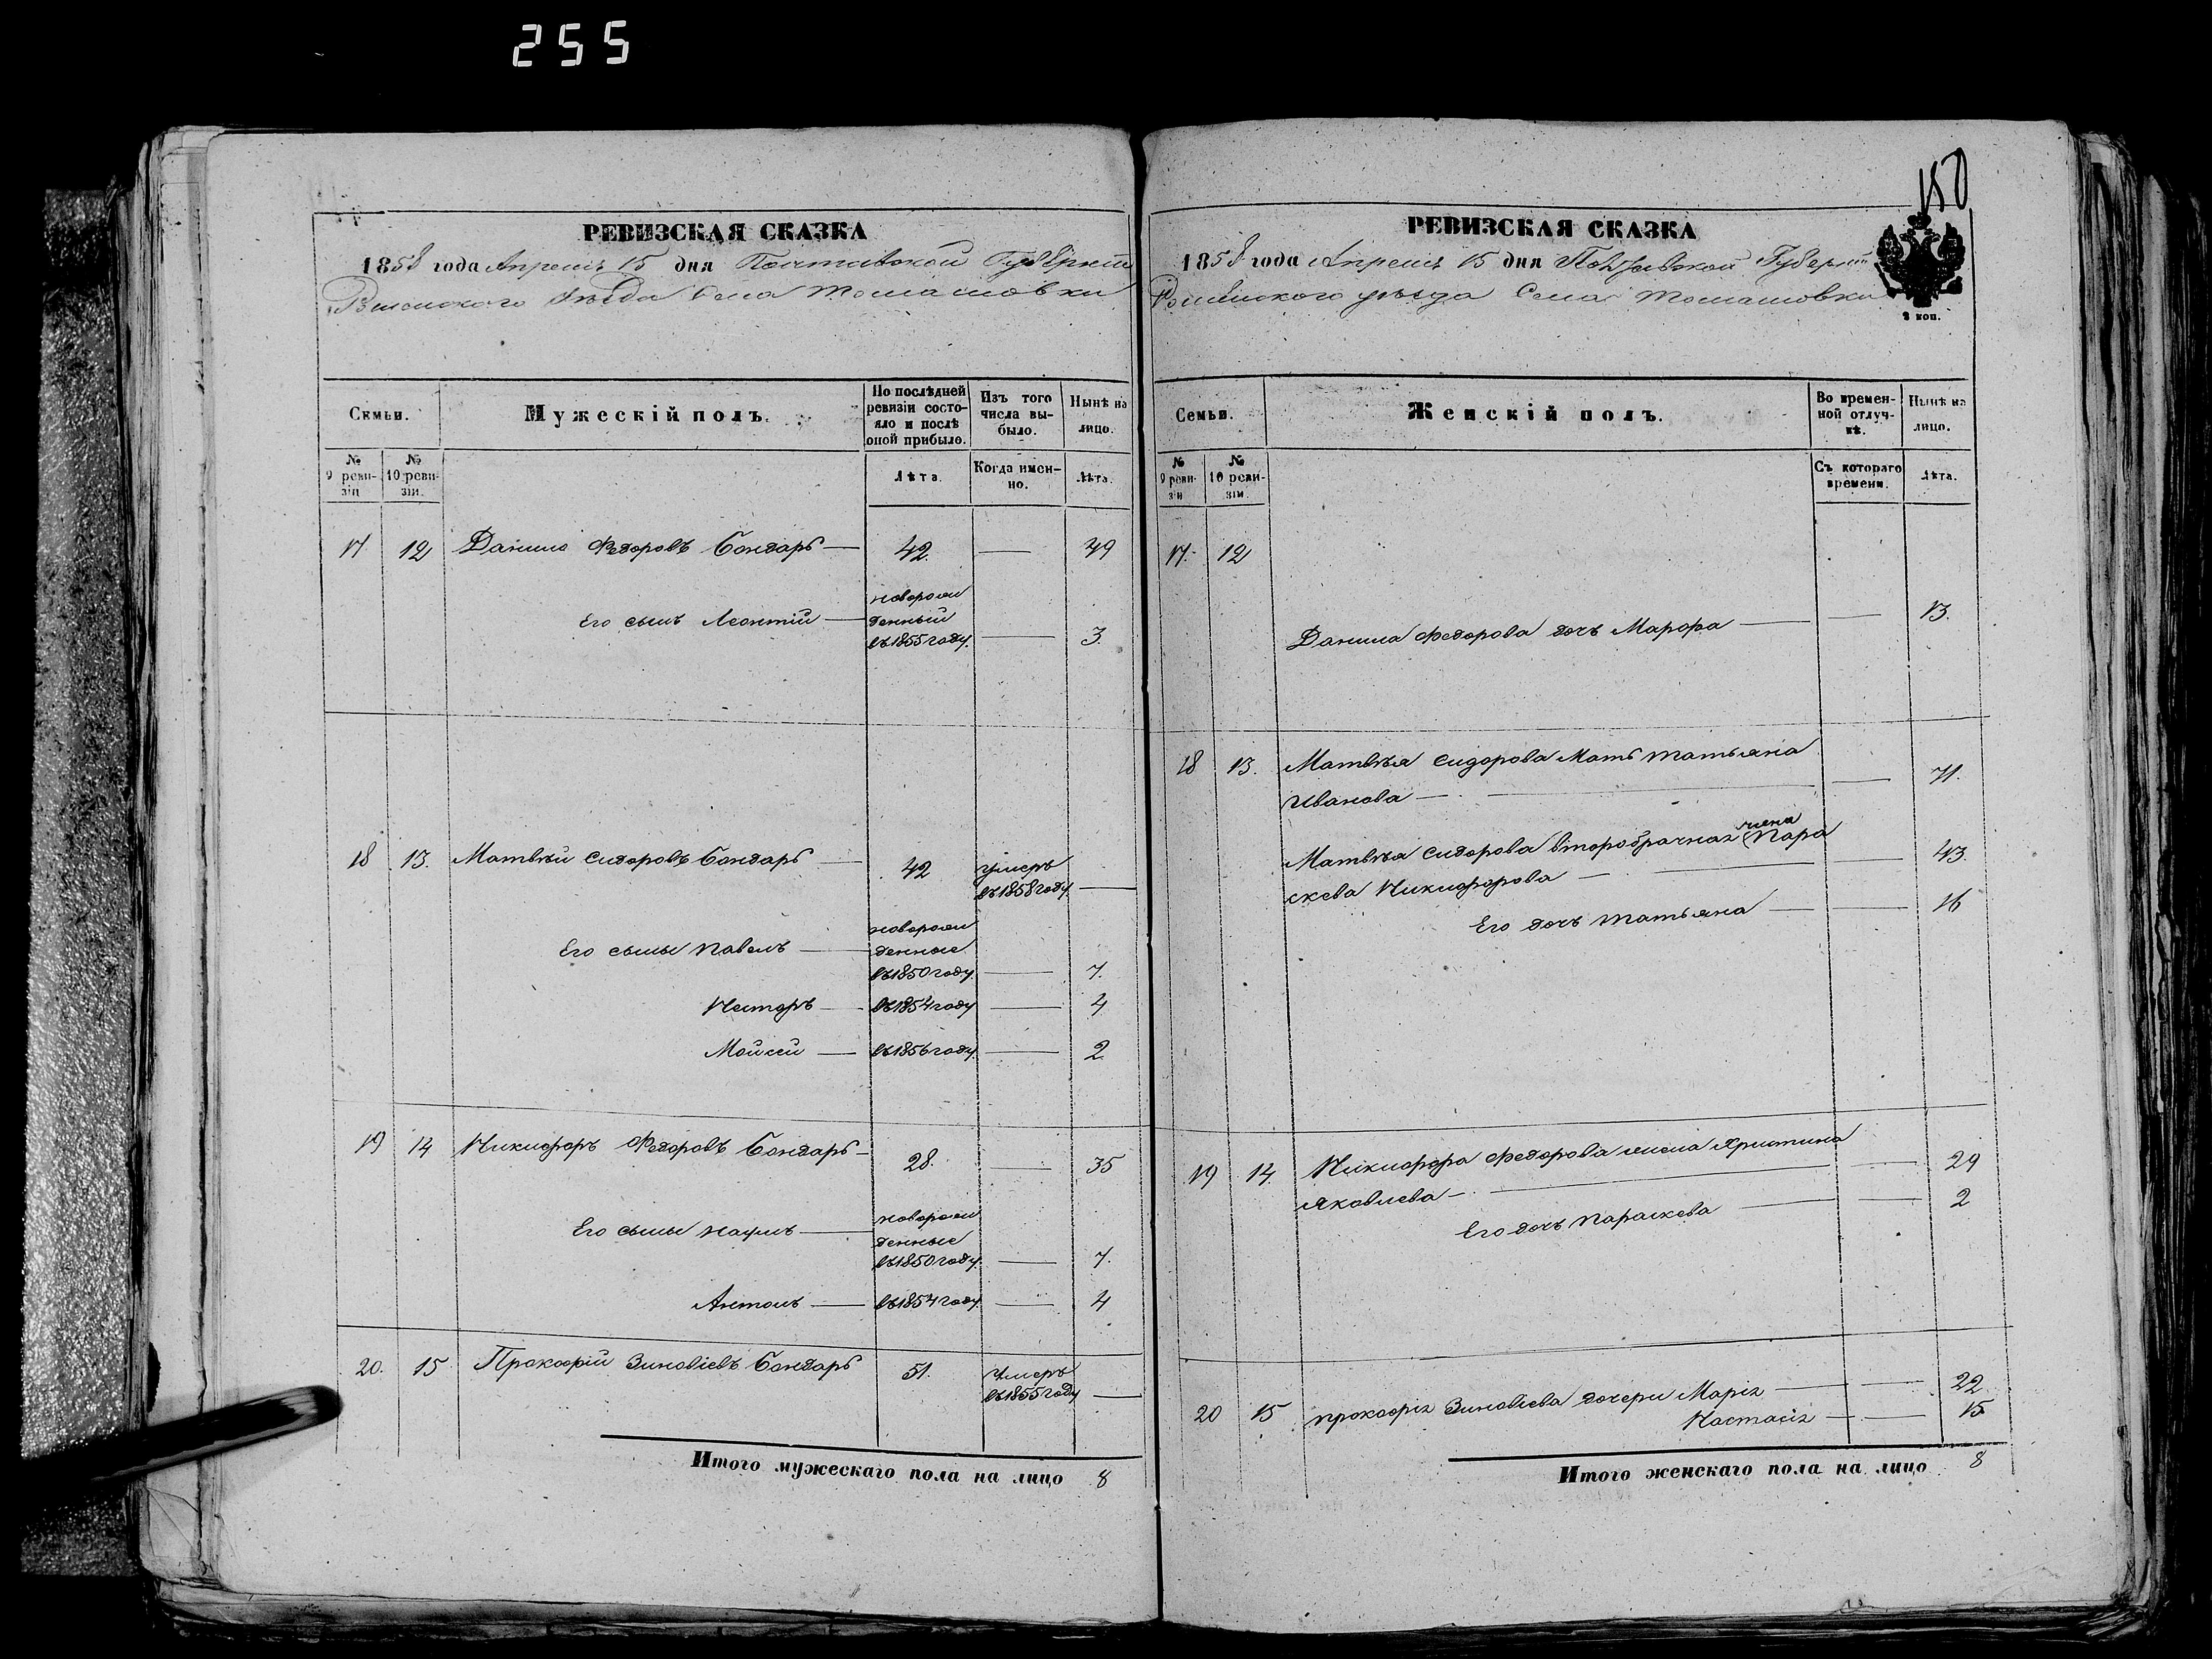 255
150
РЕВИЗСКАЯ СКАЗКА
1858 года Апреля 15 дня Полтавской Губерніи
Роменского уѣзда Села Томашовки
Семьи.
Мужескій полъ.
По послѣдней ревизіи состояло и послѣ оной прибыло.
Изъ того числа выбыло.
Нынѣ на лицо.
№ 9 ревизіи
№ 10 ревизіи.
Лѣта.
Когда именно.
Лѣта.
17 12 Данило Федоровъ Бондарь — 42. — 49
Его сынъ Леонтій — новорожденный въ 1855 году. — 3.
18 13. Матвѣй Сидоровъ Бондарь — 42 умеръ въ 1858 году —
Его сыны Павелъ — новорожденные въ 1850 году — 7.
Несторъ — въ 1854 году — 4
Мойсей — въ 1856 году — 2
19 14 Никифоръ Федоровъ Бондарь — 28. — 35
Его сыны Наумъ — новорожденные въ 1850 году — 7.
Антонъ — въ 1854 году — 4
20. 15 Прокофій Зиновіевъ Бондарь 51. умеръ въ 1855 году —
Итого мужескаго пола на лицо 8
РЕВИЗСКАЯ СКАЗКА
1858 года Апреля 15 дня Полтавской Губерніи
Роменского уѣзда Села Томашовки
2 коп.
Семьи.
Женскій полъ.
Во временной отлучкѣ.
Нынѣ на лицо.
№ 9 ревизіи
№ 10 ревизіи.
Съ котораго времени.
Лѣта.
17. 12
Данила Федорова дочь Марфа — — 13.
18 13. Матвѣя Сидорова Мать Татьяна
Иванова — — 71.
Матвѣя Сидорова второбрачная жена Пара
скева Никифорова — — 43.
Его дочь Татьяна — — 16
19 14. Никифора Федорова жена Христина
Яковлева — — 29
Его дочь Параскева — — 2
20 15 Прокофія Зиновіева дочери Марія — — 22
Настасія — — 15
Итого женскаго пола на лицо 8